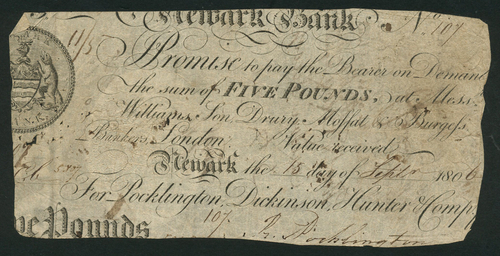 Newark Bank No 107
11/5
Promise to pay the Bearer on Demand
the sum of FIVE POUNDS, at Mess
Williams, Son, Drury, Moffatt & Burgess
Bankers, London Value received
Newark the 15 day of Septr 1806
For Pocklington, Dickinson, Hunter & Comp
107. Pocklington
ve Pounds